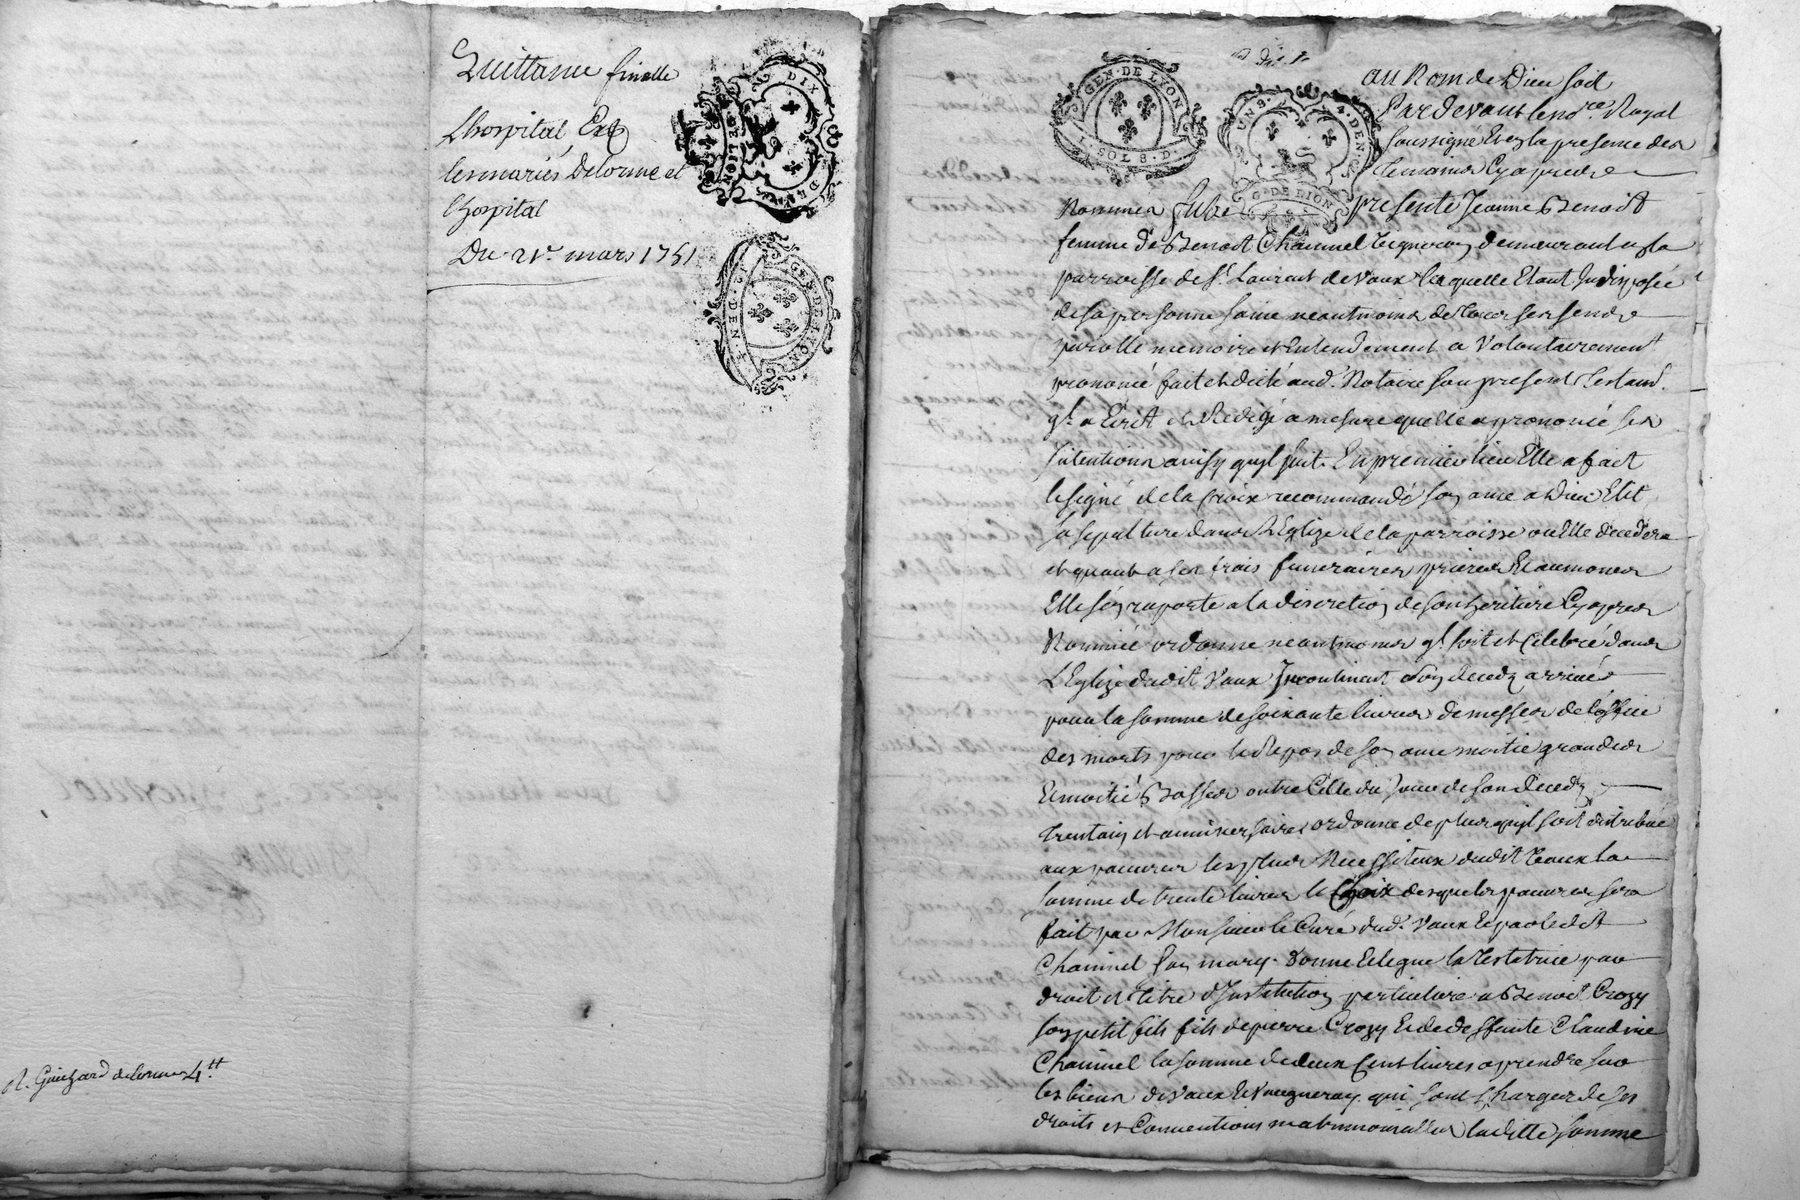 Quittance finalle
Lhospital Et
les mariés Delorme et
Lhospital
Du 21e. mars 1751
DIX
GEN·DE LYON
R. Guichard delorme 4.tt
GEN·DE LYON
1·SOLS 8·D
UN S· 4·DENIERS
G·DE LION
au Nom de Dieu soit
Pardevant le no.re Royal
soussigné Et en la presence des
Temoins Cy apres
Nommes fust presente Jeanne Benoist
femme de Benoist Chaumel vigneron demeurant en la
parroisse de St. Laurent de Vaux laquelle Etant Indisposée
de sa personne saine neantmoins de tous ses sens
parolle memoire et Entendement a volontairement
prononcé fait et dicté aud. Notaire son present Testam.t
ql a Ecrit et Redigé a mesure quelle a prononcé ses
Intentions ainsy quyl suit. En premier lieu Elle a fait
le signe de la Croix recommandé son ame a Dieu Elit
sa sepulture dans L'Eglize de la parroisse ou Elle decedera
et quant a ses frais funeraires prieres Et aumones
Elle s'en raporte a la discretion de son heritier Cy apres
Nommé ordonne neantmoins ql soit et Celebré dans
L'Eglize dudit Vaux Incontinent son decedz arrivé
pour la somme de soixante livres de messes de l'office
des morts pour le Repos de son ame moitié grandes
Et moitié Basses outre Celle du Jour de son decedz
trentain et anniversaire ordonne de plus quyl soit distribué
aux pauvres les plus Necessiteux dudit Vaux la
somme de trente livres le Choix desquels pauvres sera
fait par Monsieur le Curé dud. Vaux Et par ledit
Chaumel son mary. Donne Et legue la Testatrice par
droit et titre d'Institution particuliere a Benoit Crozy
son petit fils fils de pierre Crozy Et de deffunte Claudine
Chaumel la somme de deux Cent livres a prendre sur
les biens de Vaux Et Vaugneray qui sont Charges de ses
droits et Conventions matrimonialles laditte somme